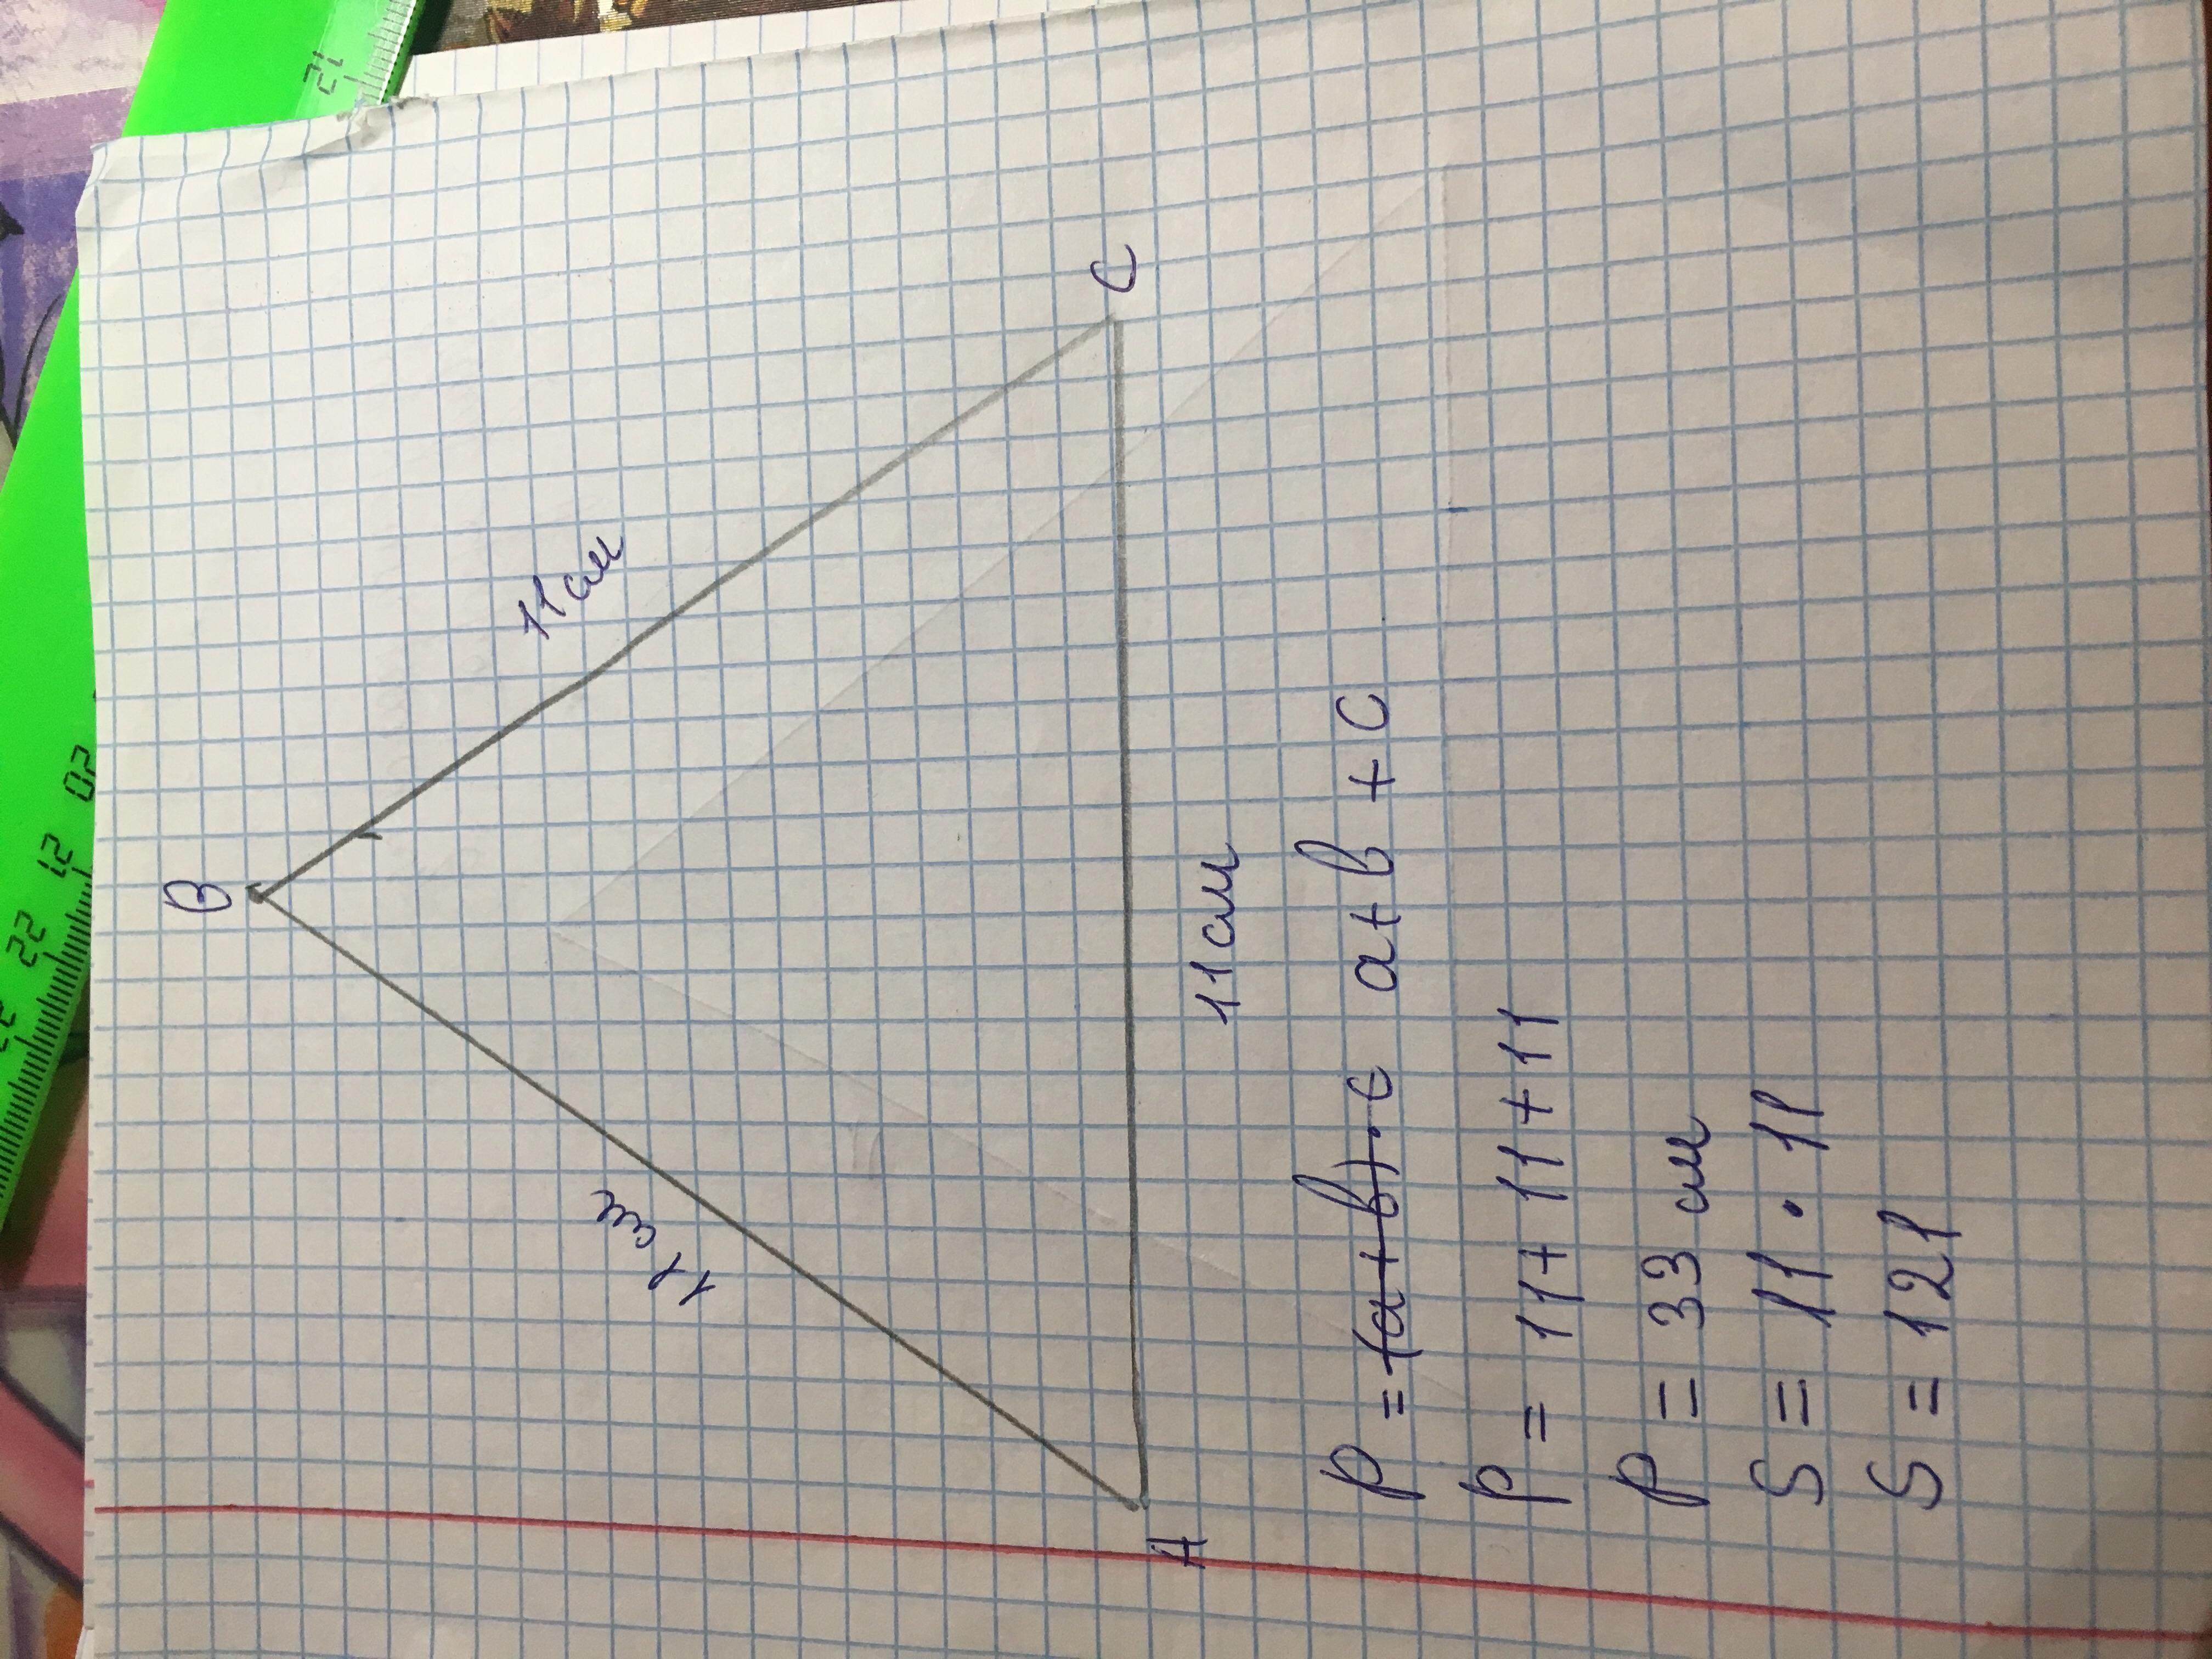 B
11 см
11 см
A
C
11 см
P = (a+b)·c a+b+c
P = 11+11+11
P = 33 см
S = 11·11
S = 121
12
20
21
22